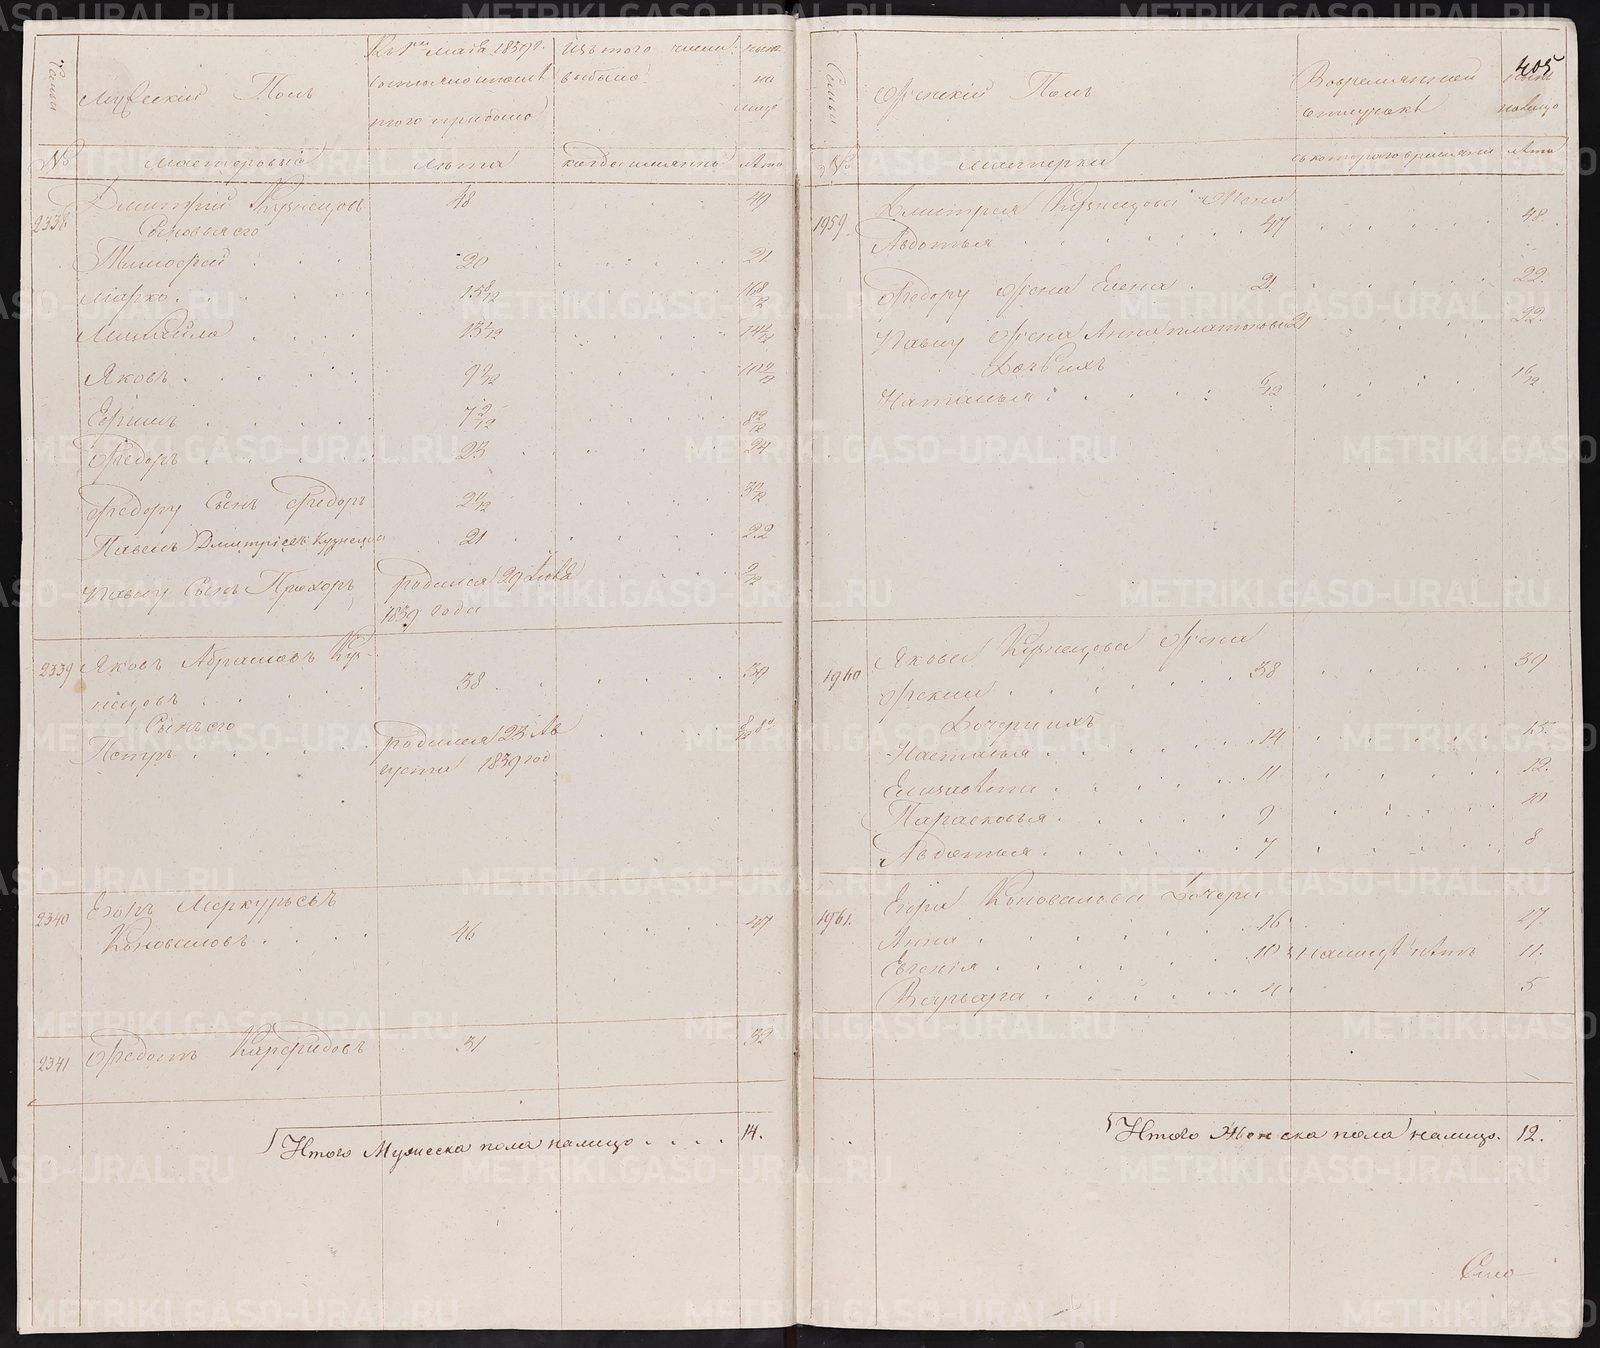 405
Семьи
Мужескій Полъ
Къ 1му Маія 1839 г.
состояло и послѣ
того прибыло
Изъ того числа
выбыло
на
лице
№
Мастеровыя
Лета
когда имянно
лѣта
2338
Дмитрій Кузнецовъ
48
49
Сыновья его
Тимофей
20
21
Марко
15 8/12
16 8/12
Михайло
Яковъ
9
Ефимъ
7
8
Федоръ
23
24
Федору Сынъ Федоръ
2
3
Павелъ Дмитріевъ Кузнецовъ
21
22
Павлу Сынъ Прохоръ
родился 29
1839 года
2339
Яковъ Абрамовъ Куз-
нецовъ
38
39
Сынъ его
Петръ
родился 23 Ав
густа 1839 год
2340
Егоръ Меркурьевъ
Коноваловъ
46
47
2341
Федотъ
31
32
Итого Мужеска пола налицо
14.
Семьи
Женскій Полъ
Во временной
отлучкѣ
налицо
№
Мастерки
съ котораго времяни
лѣта
1959.
Дмитрия Кузнецова Жена
Авдотья
47
48
Федору Жена Елена
21
22.
Павлу Жена Анна Платонова
21
22.
Дочь ихъ
Наталья
6/12
1 6/12
1960
Якова Кузнецова Жена
38
39
Дочери ихъ
Настасья
14
15.
Елизавета
11
12.
Парасковья
9
10
Авдотья
7
8
1961.
Егора Коновалова Дочери
Анна
16
17
Евгенія
10
11.
Варвара
4
5
Итого Женска пола налицо.
12.
METRIKI.GASO-URAL.RU